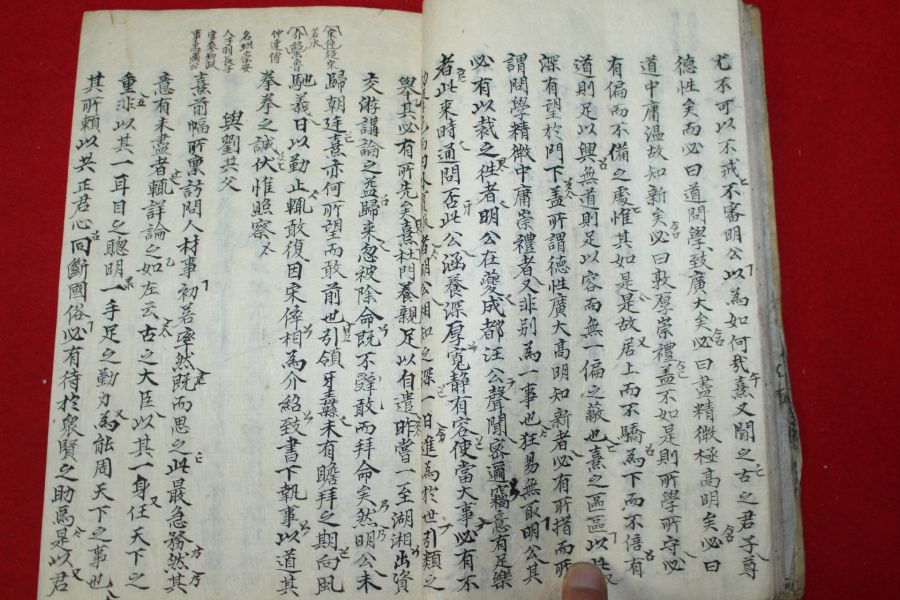 尤不可以不戒不審明公以為如何哉熹又聞之古之君子尊
德性矣而必曰道問學致廣大矣必曰盡精微極高明矣必曰
道中庸溫故知新矣必曰敦厚崇禮盖不如是則所學所守必
有偏而不備之處惟其如是是故居上而不驕為下而不倍有
道則足以興無道則足以容而無一偏之蔽也熹之區區以此
深有望於門下盖所謂德性廣大高明知新者必有所措而所
謂問學精微中庸崇禮者又非別為一事也狂易無取明公其
必有以裁之徃者明公在夔成都汪公聲聞密邇竊意有足樂
者此來時通問否此公涵養深厚寬静有容使當大事必有不
者明公相知之深一日進為於世引類之
舉其必有所先矣熹杜門養親足以自遣昨嘗一至湖湘出資
交游講論之益歸來忽被除命既不辭敢而拜命矣然明公未
歸朝廷熹亦何所望而敢前也引領牙纛未有瞻拜之期向風
馳義日以勤止輒敢復因宋倅相為介紹致書下執事以道其
若水
介紹魯
仲連傳
拳拳之誠伏惟照察
與劉共父
名珙崇安
人子羽長子
官參知政
事忠肅公
熹前幅所稟訪問人材事初若率然既而思之此最急務然其
意有未盡者輒詳論之如左云古之大臣以其一身任天下之
重非以其一耳目之聰明一手足之勤力為能周天下之事也
其所賴以共正君心同斷國俗必有待於衆賢之助焉是以君